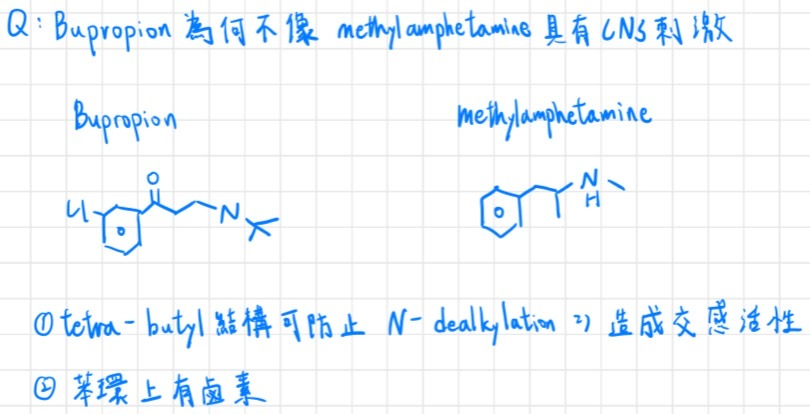 Q: Bupropion 為何不像 methylamphetamine 具有 CNS 刺激
Bupropion methylamphetamine
O
Cl N N
H
① tetra-butyl 結構可防止 N-dealkylation => 造成交感活性
② 苯環上有鹵素